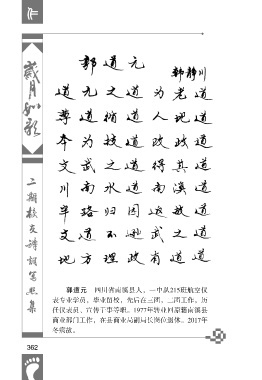 作
岁月如歌
二期校友诗词写照集
郭道元
韩静川
道 九 之 道 为 老 道
尊 道 循 道 人 地 道
本 为 授 道 政 成 道
文 武 之 道 得 其 道
川 南 水 道 南 溪 道
平 路 归 田 这 故 道
文 道 不 逊 武 之 道
地 方 理 政 有 道 道
郭道元　四川省南溪县人，一中队215班航空仪
表专业学员，毕业留校，先后在三团、二团工作，历
任仪表员、宣传干事等职。1977年转业回原籍南溪县
商业部门工作，在县商业局副局长岗位退休。2017年
冬病故。
362